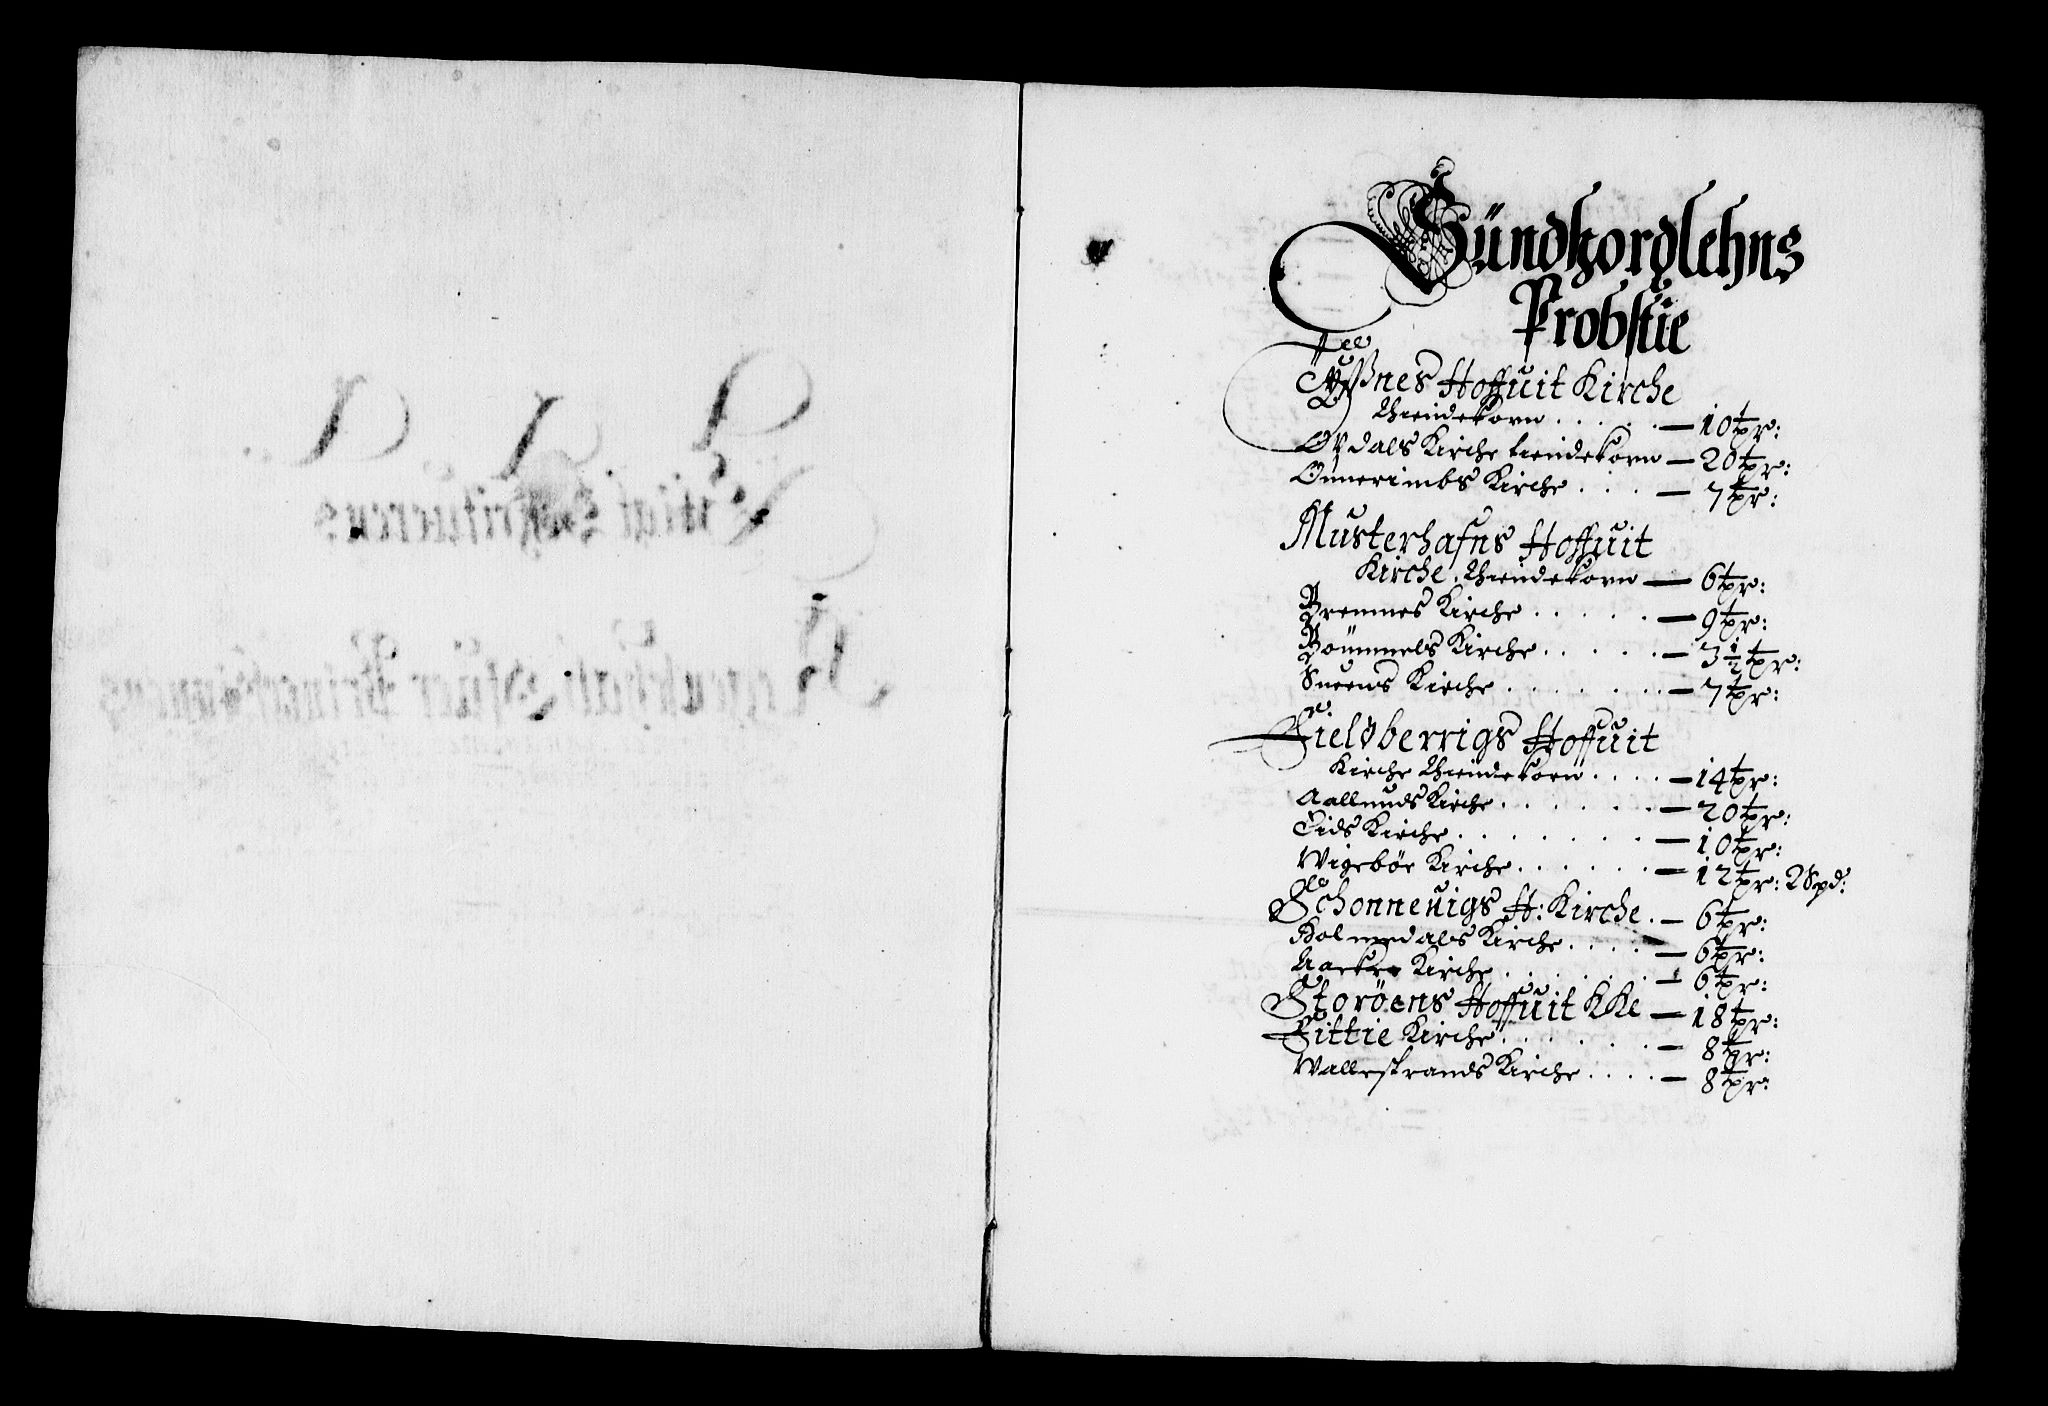 Sündhordlehns
Probstie
Tÿßnes Hoffuit Kirche
thiendekorn . . . . . — 10 tpr:
Opdals Kirche tiendekorn — 20 tpr:
Ønnerimbs Kirche . . . . — 7 tpr:
Musterhafns Hoffuit
Kirche. thiendekorn — 6 tpr:
Bremnes Kirche . . . . . — 9 tpr:
Bømmels Kirche . . . . . — 3½ tpr:
Sueens Kirche . . . . . . . — 7 tpr:
Fieldberrigs Hoffuit
Kirche thiendekorn . . . . — 14 tpr:
Aallunds Kirche . . . . . . — 20 tpr:
Eids Kirche . . . . . . . . — 10 tpr:
Wigebøe Kirche . . . . . . — 12 tpr: 2 Spd:
Schonneuigs H: Kirche . — 6 tpr:
Holmedals Kirche . . . . — 6 tpr:
Aackre Kirche . . . . . . — 6 tpr:
Storöens Hoffuit KKe — 18 tpr:
Fittie Kirche . . . . . . — 8 tpr:
Wallestrands Kirche . . . . — 8 tpr: